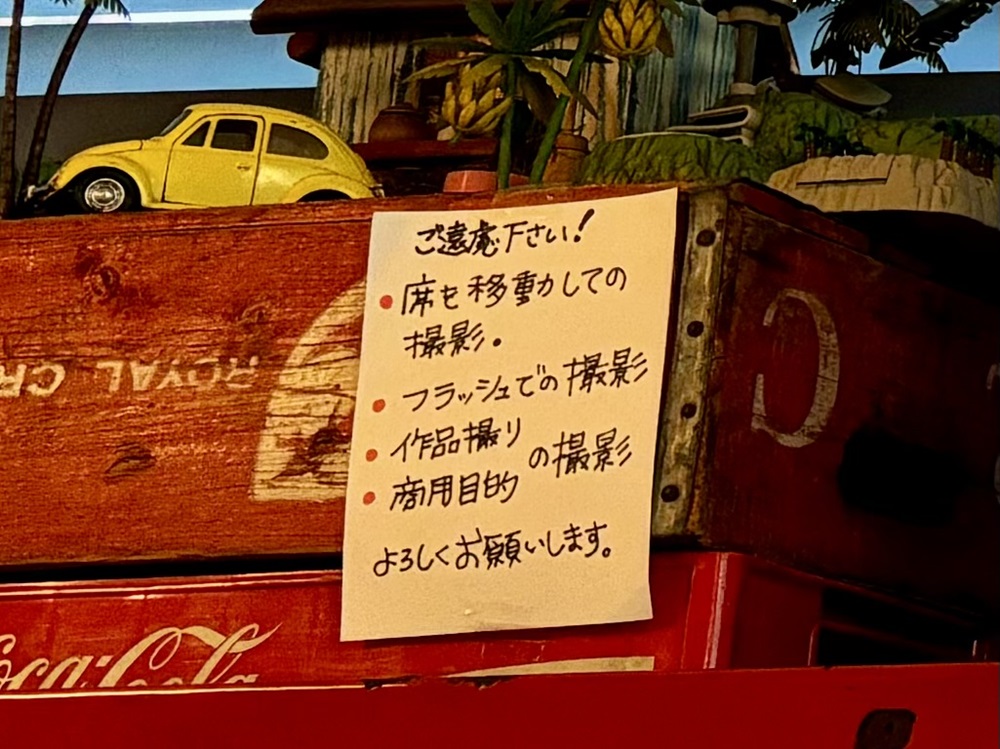 ご遠慮下さい!
• 席を移動しての
撮影。
• フラッシュでの撮影
• 作品撮り
• 商用目的
の撮影
よろしくお願いします。
ROYAL CR
C
Coca-Cola